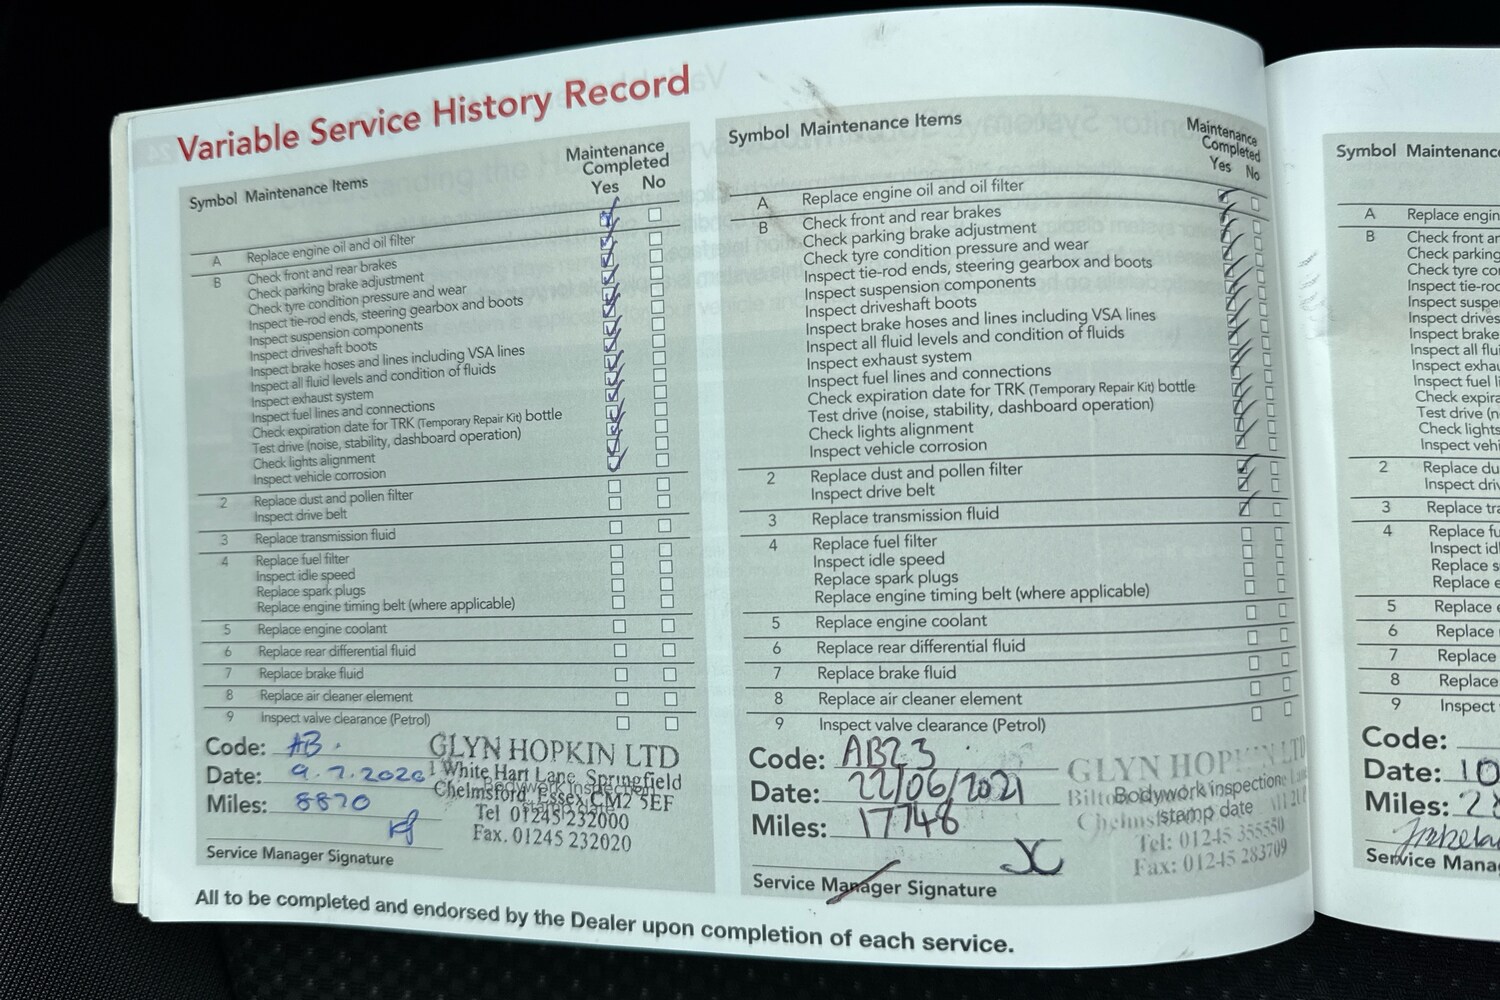 Variable Service History Record
Symbol Maintenance Items
Maintenance
Completed
Yes No
A Replace engine oil and oil filter
B Check front and rear brakes
Check parking brake adjustment
Check tyre condition pressure and wear
Inspect tie-rod ends, steering gearbox and boots
Inspect suspension components
Inspect driveshaft boots
Inspect brake hoses and lines including VSA lines
Inspect all fluid levels and condition of fluids
Inspect exhaust system
Inspect fuel lines and connections
Check expiration date for TRK (Temporary Repair Kit) bottle
Test drive (noise, stability, dashboard operation)
Check lights alignment
Inspect vehicle corrosion
2 Replace dust and pollen filter
Inspect drive belt
3 Replace transmission fluid
4 Replace fuel filter
Inspect idle speed
Replace spark plugs
Replace engine timing belt (where applicable)
5 Replace engine coolant
6 Replace rear differential fluid
7 Replace brake fluid
8 Replace air cleaner element
9 Inspect valve clearance (Petrol)
Code: AB.
Date: 9.7.2020
Miles: 8870
Service Manager Signature
GLYN HOPKIN LTD
1 White Hart Lane, Springfield
Bodywork inspection
Chelmsford, Essex CM2 5EF
stamp date
Tel 01245 232000
Fax. 01245 232020
Symbol Maintenance Items
Maintenance
Completed
Yes No
A Replace engine oil and oil filter
B Check front and rear brakes
Check parking brake adjustment
Check tyre condition pressure and wear
Inspect tie-rod ends, steering gearbox and boots
Inspect suspension components
Inspect driveshaft boots
Inspect brake hoses and lines including VSA lines
Inspect all fluid levels and condition of fluids
Inspect exhaust system
Inspect fuel lines and connections
Check expiration date for TRK (Temporary Repair Kit) bottle
Test drive (noise, stability, dashboard operation)
Check lights alignment
Inspect vehicle corrosion
2 Replace dust and pollen filter
Inspect drive belt
3 Replace transmission fluid
4 Replace fuel filter
Inspect idle speed
Replace spark plugs
Replace engine timing belt (where applicable)
5 Replace engine coolant
6 Replace rear differential fluid
7 Replace brake fluid
8 Replace air cleaner element
9 Inspect valve clearance (Petrol)
Code: AB23
Date: 22/06/2021
Miles: 17748
JC
Service Manager Signature
GLYN
Bodywork inspection
stamp date
Tel: 01245 355550
Fax: 01245 283709
All to be completed and endorsed by the Dealer upon completion of each service.
Symbol Maintenance
A Replace engin
B Check front ar
Check parking
Check tyre co
Inspect tie-roc
Inspect suspe
Inspect drives
Inspect brake
Inspect all flui
Inspect exhau
Inspect fuel li
Check expira
Test drive (n
Check lights
Inspect vehi
2 Replace du
Inspect driv
3 Replace tra
4 Replace fu
Inspect idl
Replace s
Replace e
5 Replace e
6 Replace
7 Replace
8 Replace
9 Inspect
Code:
Date: 10
Miles: 2
Service Mana